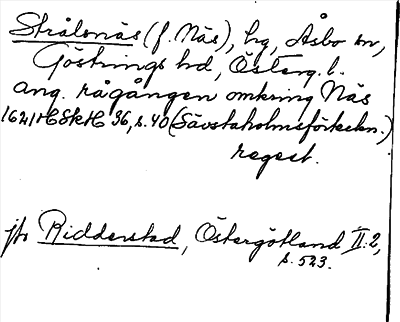 Strålsnäs (f. Näs), hg, Åsbo sn,
Göstrings hd, Österg. l.
ang. rågången omkring Näs
1621 HSkH 36, s. 40 (Sävstaholmsförteckn.)
regest.
jfr Ridderstad, Östergötland II:2,
s. 523.